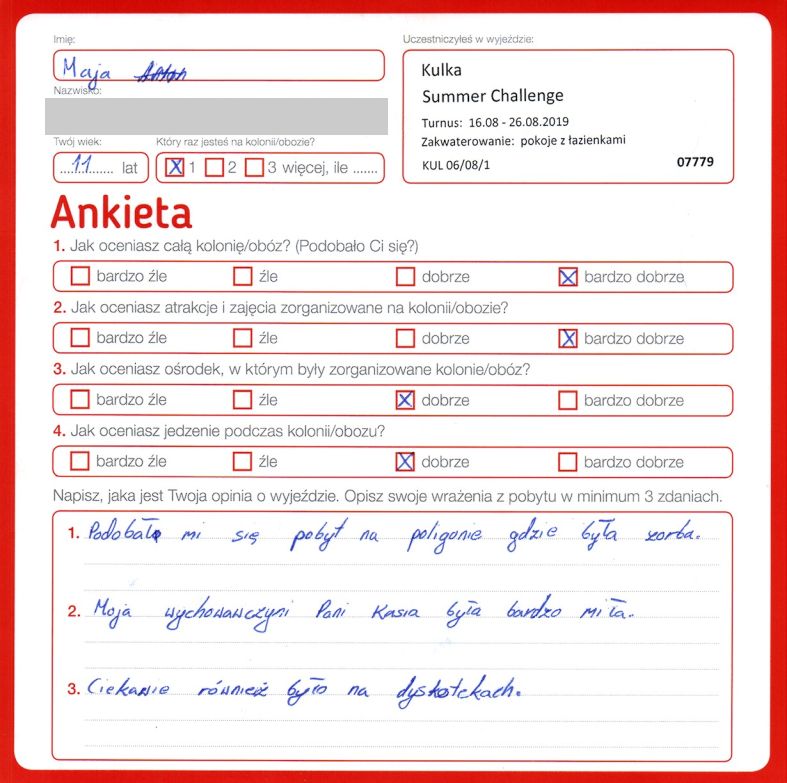 Imię:
Maja
Nazwisko:
Twój wiek:
Który raz jesteś na kolonii/obozie?
....11........ lat
1 2 3 więcej, ile .......
Uczestniczyłeś w wyjeździe:
Kulka
Summer Challenge
Turnus: 16.08 - 26.08.2019
Zakwaterowanie: pokoje z łazienkami
KUL 06/08/1 07779
Ankieta
1. Jak oceniasz całą kolonię/obóz? (Podobało Ci się?)
bardzo źle źle dobrze bardzo dobrze
2. Jak oceniasz atrakcje i zajęcia zorganizowane na kolonii/obozie?
bardzo źle źle dobrze bardzo dobrze
3. Jak oceniasz ośrodek, w którym były zorganizowane kolonie/obóz?
bardzo źle źle dobrze bardzo dobrze
4. Jak oceniasz jedzenie podczas kolonii/obozu?
bardzo źle źle dobrze bardzo dobrze
Napisz, jaka jest Twoja opinia o wyjeździe. Opisz swoje wrażenia z pobytu w minimum 3 zdaniach.
1. Podobał mi się pobyt na poligonie gdzie była zorba.
2. Moja wychowawczyni Pani Kasia była bardzo miła.
3. Ciekawie również było na dyskotekach.